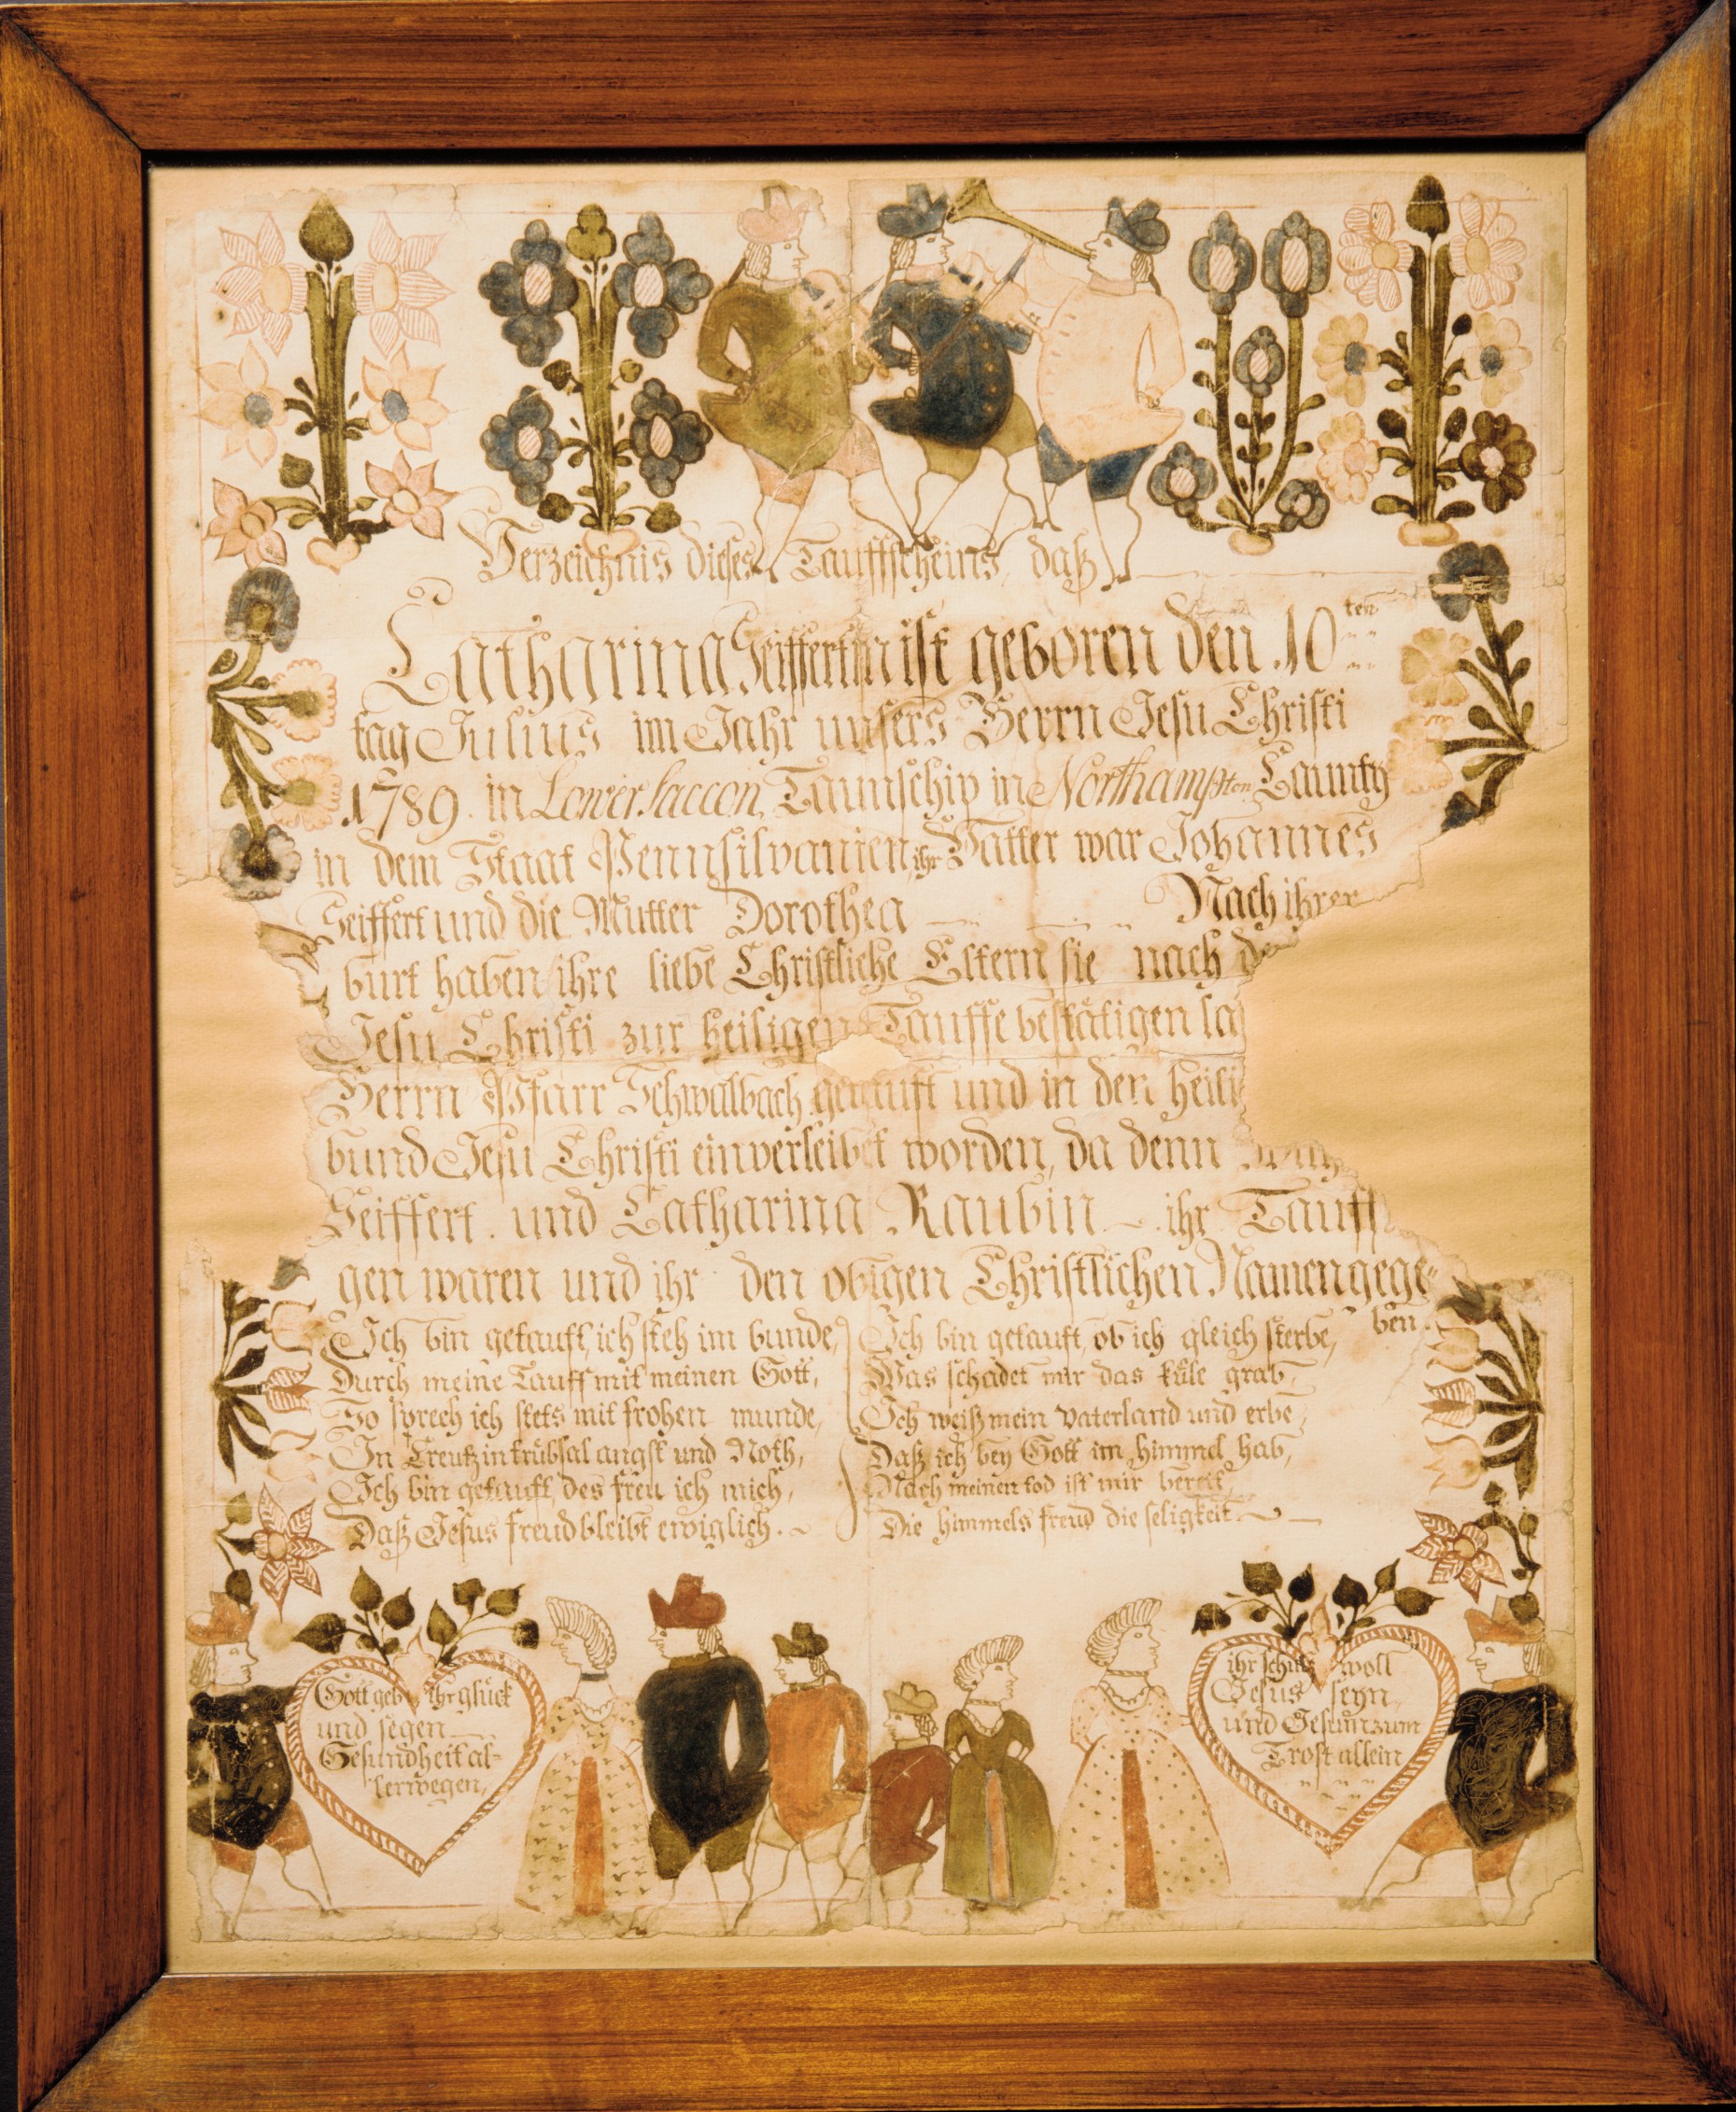 Verzeichnis dieses Tauffscheins, daß
Catharina Seiffertin ist geboren den 10ten
tag Julius im Jahr unsers Herrn Jesu Christi
1789. in Lower Saccon, Taunschip in Northampton Caunty
in dem Staat Pennsilvanien, ihr Vatter war Johannes
Seiffert und die Mutter Dorothea Nach ihrer
burt haben ihre liebe Christliche Eltern sie nach
Jesu Christi zur heiligen Tauffe bestätigen la
Herrn Pfarr Schwalbach getauft und in den heili
bund Jesu Christi einverleibet worden, da denn
Seiffert. und Catharina Raubin ihr Tauff
gen waren und ihr den obigen Christlichen Namen gege-
ben.
Ich bin getauft, ich steh im bunde,
Durch meine Tauff mit meinen Gott,
So sprech ich stets mit frohen munde,
In Creutz in trübsal angst und Noth,
Ich bin getauft, des freu ich mich,
Daß Jesus freud bleibt ewiglich.
Ich bin getauft, ob ich gleich sterbe,
Was schadet mir das küle grab,
Ich weiß mein vaterland und erbe,
Daß ich bey Gott im himmel hab,
Nach meinen tod ist mir bereit,
Die himmels freud die seligkeit.
Gott geb ihr glück
und segen
Gesundheit al-
lerwegen,
ihr schutz woll
Jesus seyn,
und Jesum zum
Trost allein